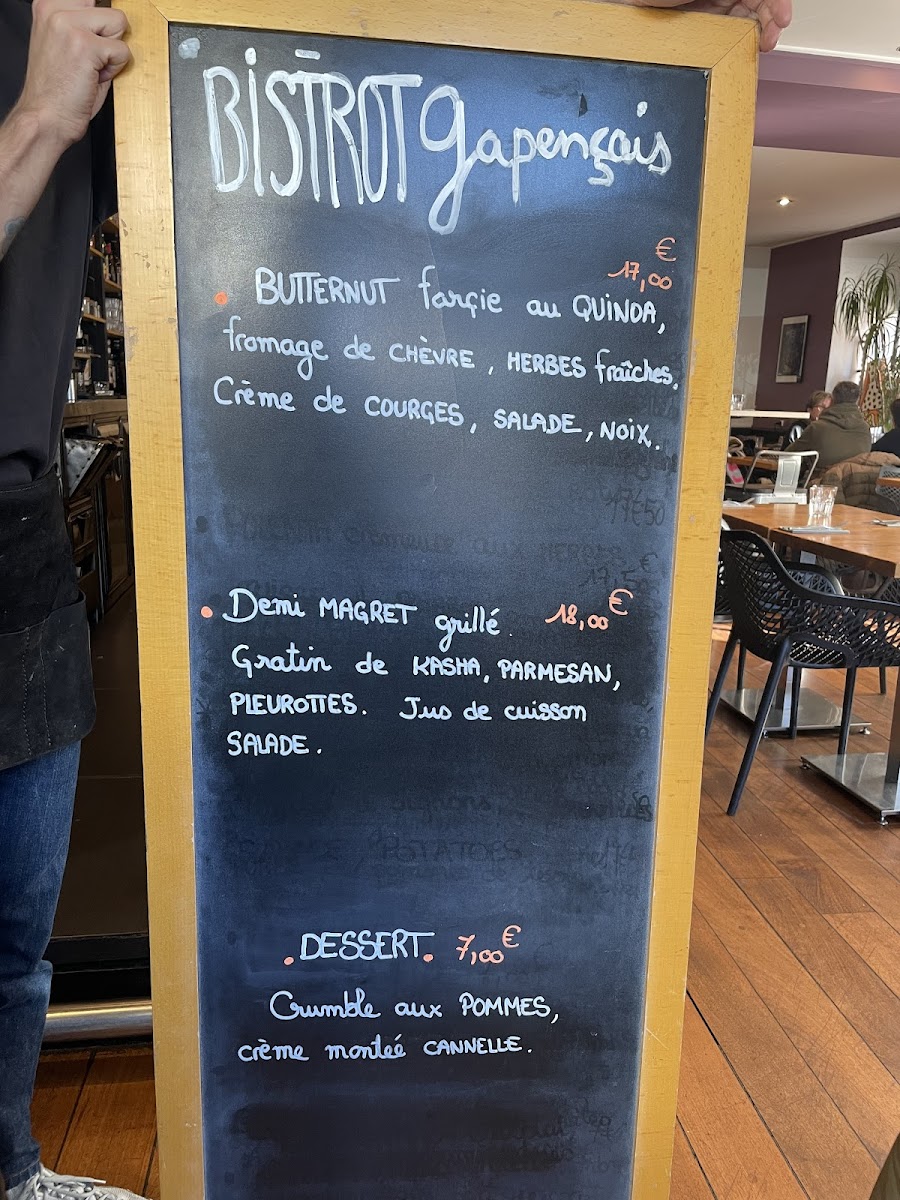 BISTROT gapençais
17,00 €
• BUTTERNUT farçie au QUINOA,
fromage de CHÈVRE, HERBES fraîches.
Crème de COURGES, SALADE, NOIX.
17€50
• Demi MAGRET grillé. 18,00€
Gratin de KASHA, PARMESAN,
PLEUROTTES. Jus de cuisson
SALADE.
POTATOES
• DESSERT. 7,00€
Crumble aux POMMES,
crème monteé CANNELLE.